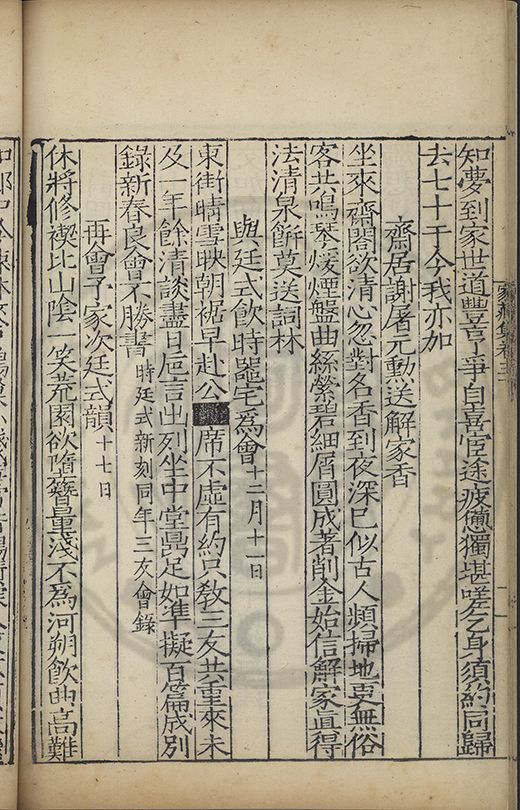 知夢到家世道豐亨爭自喜宦途疲憊獨堪嗟乞身須約同歸
去七十于今我亦加
齋居謝屠元勳送解家香
坐來齋閣欲清心忽對名香到夜深已似古人頻掃地更無俗
客共鳴琴煖煙盤曲絲縈碧細屑圓成著削金始信解家真得
法清泉餅莫送詞林
與廷式飲時器宅為會十二月十一日
東街晴雪映朝裾早赴公席不虛有約只教三友共重來未
及一年餘清談盡日卮言出列坐中堂鼎足如準擬百篇成別
錄新春良會不勝書時廷式新刻同年三友會錄
再會予家次廷式韻十七日
休將修禊比山陰一笑荒園欲墮簪量淺不為河朔飲曲高難